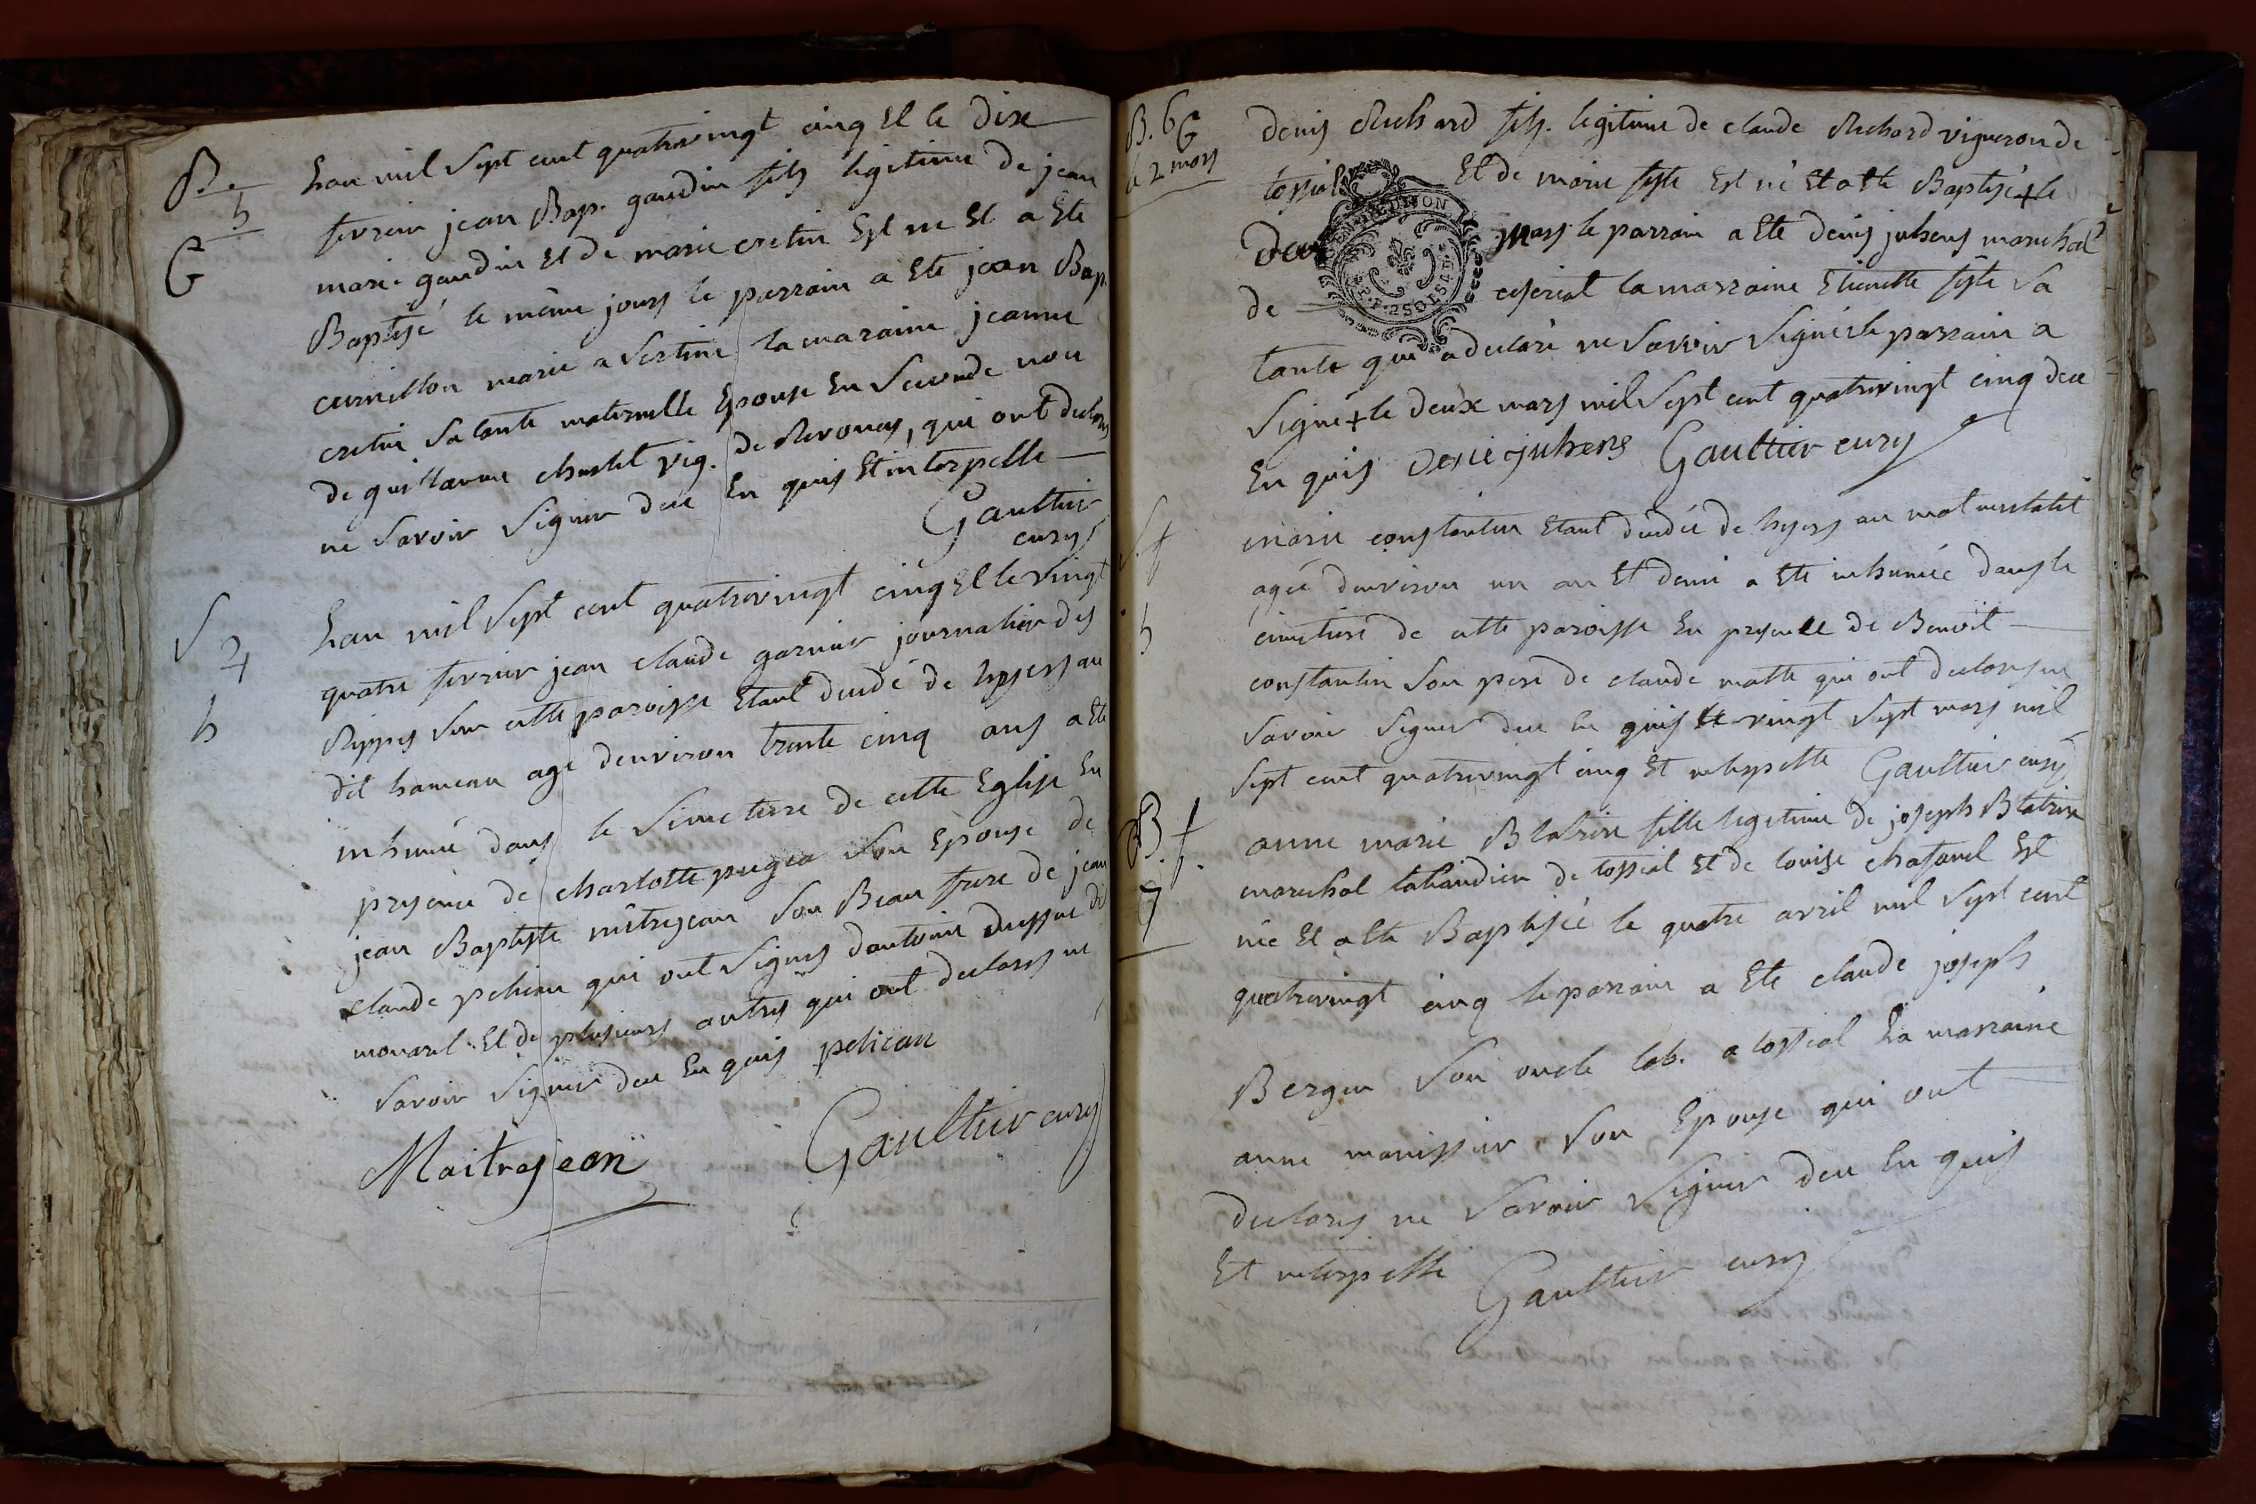 B. 5
G
Lan mil sept cent quatrevingt cinq et le dix
fevrier jean Bap. gaudin fils legitime de jean
marie gaudin et de marie cretin est ne et a ete
Baptisé le même jours le parrain a ete jean Bap.
cornillon marie a Sertine la maraine jeanne
cretin sa tante maternelle Epouse En Seconde nou
de guillaume chastel vig. de Revonas, qui ont declarés
ne savoir signer deu En quis Et interpelle
Gaultier
curé
S 2
h
Lan mil sept cent quatrevingt cinq et le vingt
quatre fevrier jean claude garnier journalier des
Rippes sur cette paroisse etant decedé de hyers au
dit hameau agé denviron trente cinq ans a ete
inhumé dans le Simetiere de cette Eglise En
presence de charlotte son Epouse de
jean Baptiste mêtrejean son Beau frere de jean
claude pelican qui ont signes dantoine
monarel Et de plusieurs autres qui ont declarés ne
savoir signer deu En quis pelican
Maitrejean Gaultier curé
B. 6 G
le 2 mars
denis Richard fils. legitime de claude Richard vigneron de
tossiat Et de marie Est né Et a ete Baptisé + le
deux mars le parrain a Ete denis juhens marechal
de ceyseriat la marraine Etienette sa
tante qui a declaré ne savoir signer le parrain a
signé + le deux mars mil sept cent quatrevingt cinq deu
En quis denis juhens Gaultier curé
S. f
h
marie constantin Etant decedée de hyers au
agée denviron un an Et demi a Ete inhumée dans le
cimetiere de cette paroisse En presence de Benoit
constantin son pere de claude matte qui ont declarés ne
savoir signer deu En quis le vingt sept mars mil
sept cent quatrevingt cinq Et interpelle Gaultier curé
B. f.
7
anne marie Blatrin fille legitime de joseph Blatrin
marechal de tossiat Et de louise chatanel Est
née Et a Ete Baptisée le quatre avril mil sept cent
quatrevingt cinq le parrain a Ete claude joseph
Berger son oncle lab. a tossiat la marraine
anne manissier son Epouse qui ont
declarés ne savoir signer deu En quis
Et interpelle Gaultier curé